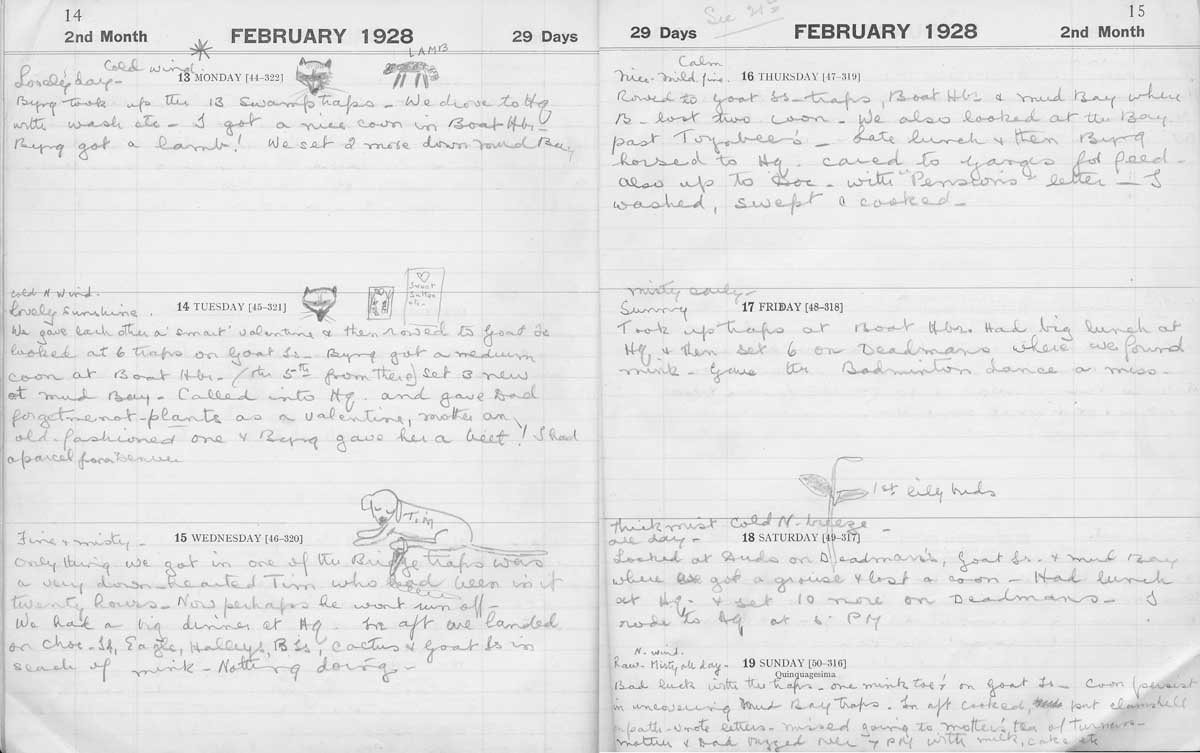 14
2nd Month
FEBRUARY 1928
29 Days
Cold wind.
Lovely day -
13 MONDAY [44-322]
LAMB
Byng took up the 13 swamp traps - We drove to Hq
with wash etc - I got a nice coon in Boat Hbr -
Byng got a lamb! We set 2 more down round Bay
Cold N Wind.
Lovely Sunshine.
14 TUESDAY [45-321]
Sweet
We gave each other a 'smart' valentine & then rowed to Goat Is
looked at 6 traps on Goat Is - Byng got a medium
coon at Boat Hbr - (the 5th from there) set 3 new
at mud Bay - Called into Hq. and gave Dad
forget-me-not-plants as a valentine, mother an
old-fashioned one & Byng gave her a beet! I had
a parcel from Denver
TIM
Fine & misty -
15 WEDNESDAY [46-320]
Only thing we got in one of the Bridge traps was
a very down-hearted Tim who had been in it
twenty hours - Now perhaps he wont run off -
We had a big dinner at Hq. In aft we landed
on Choc - Is, Eagle, Halleys, B Is, Cactus & Goat Is in
seach of mink - Nothing doing -
See
15
29 Days
FEBRUARY 1928
2nd Month
Calm
Nice - Mild, fine.
16 THURSDAY [47-319]
Rowed to Goat Is - traps, Boat Hbr & mud Bay where
B - lost two coon - We also looked at the Bay
past Toynbee's - Late lunch & then Byng
horsed to Hq. cared to Ganges for feed -
also up to Doc - with "Pensions" letter - I
washed, swept & cooked -
misty early -
Sunny
17 FRIDAY [48-318]
Took up traps at Boat Hbr. Had big lunch at
Hq & then set 6 on Deadmans where we found
mink - Gave the Badminton dance a miss -
1st lily buds
Thick mist Cold N - breeze -
all day -
18 SATURDAY [49-317]
Looked at Duds on Deadman's, Goat Is. & mud Bay
where we got a grouse & lost a coon - Had lunch
at Hq. & set 10 more on Deadmans - I
rode to Hq at 5. PM
N. wind.
Raw - Misty all day -
19 SUNDAY [50-316]
Quinquagesima
Bad luck with the traps - one mink toe! on Goat Is - Coon persist
in uncovering Mud Bay traps. In aft cooked, put clamshell
path - wrote letters - missed going to mother's tea of Turners -
mother & Dad over 7 PM with milk, cake etc